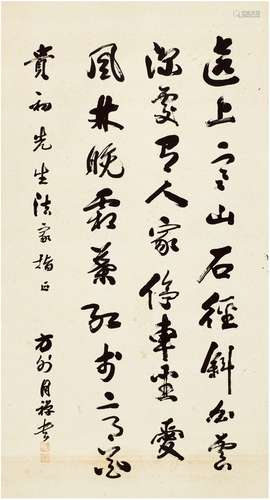 遠上寒山石徑斜白雲
深處有人家停車坐愛
風林晚霜葉紅於二月花
貴初先生法家指正 方外月禪書